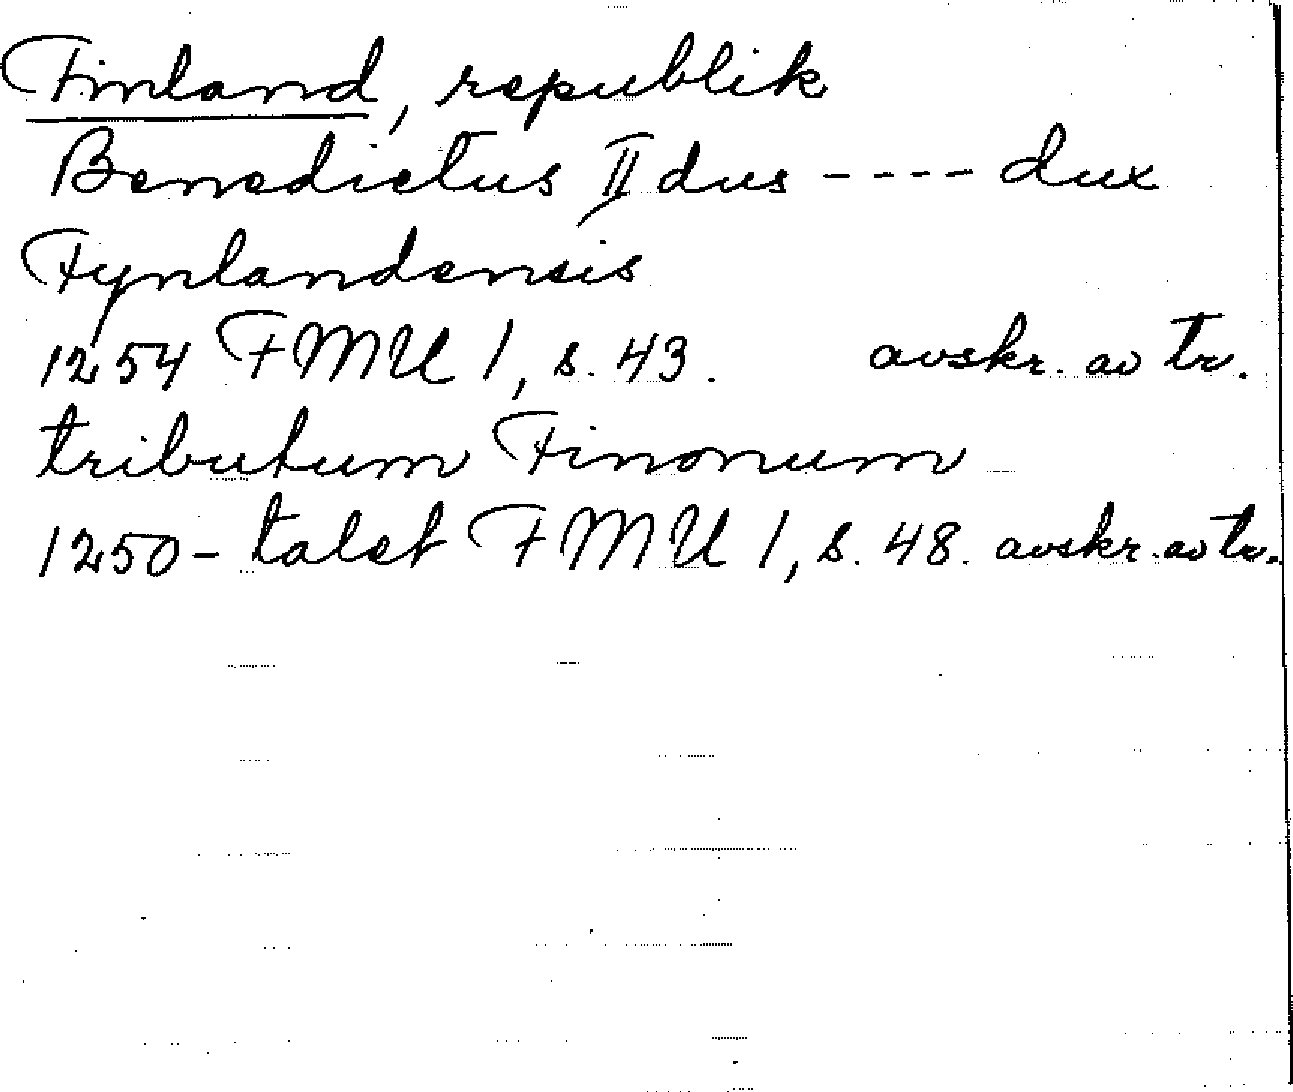 Finland, republik
Benedictus IIdus ---- dux
Fynlandensis
1254 FMU 1, s. 43. avskr. av tr.
tributum Finonum
1250-talet FMU 1, s. 48. avskr. av tr.